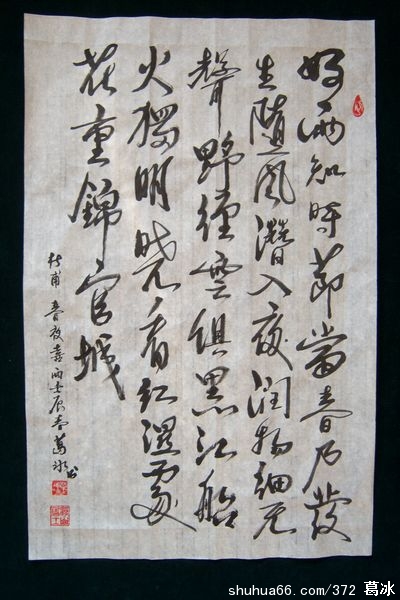 好雨知時節當春乃發
生隨風潛入夜潤物細无
聲野徑雲俱黑江船
火獨明曉看紅濕處
花重錦官城
杜甫 春夜喜雨 壬辰春葛冰书
shuhua66.com/372 葛冰